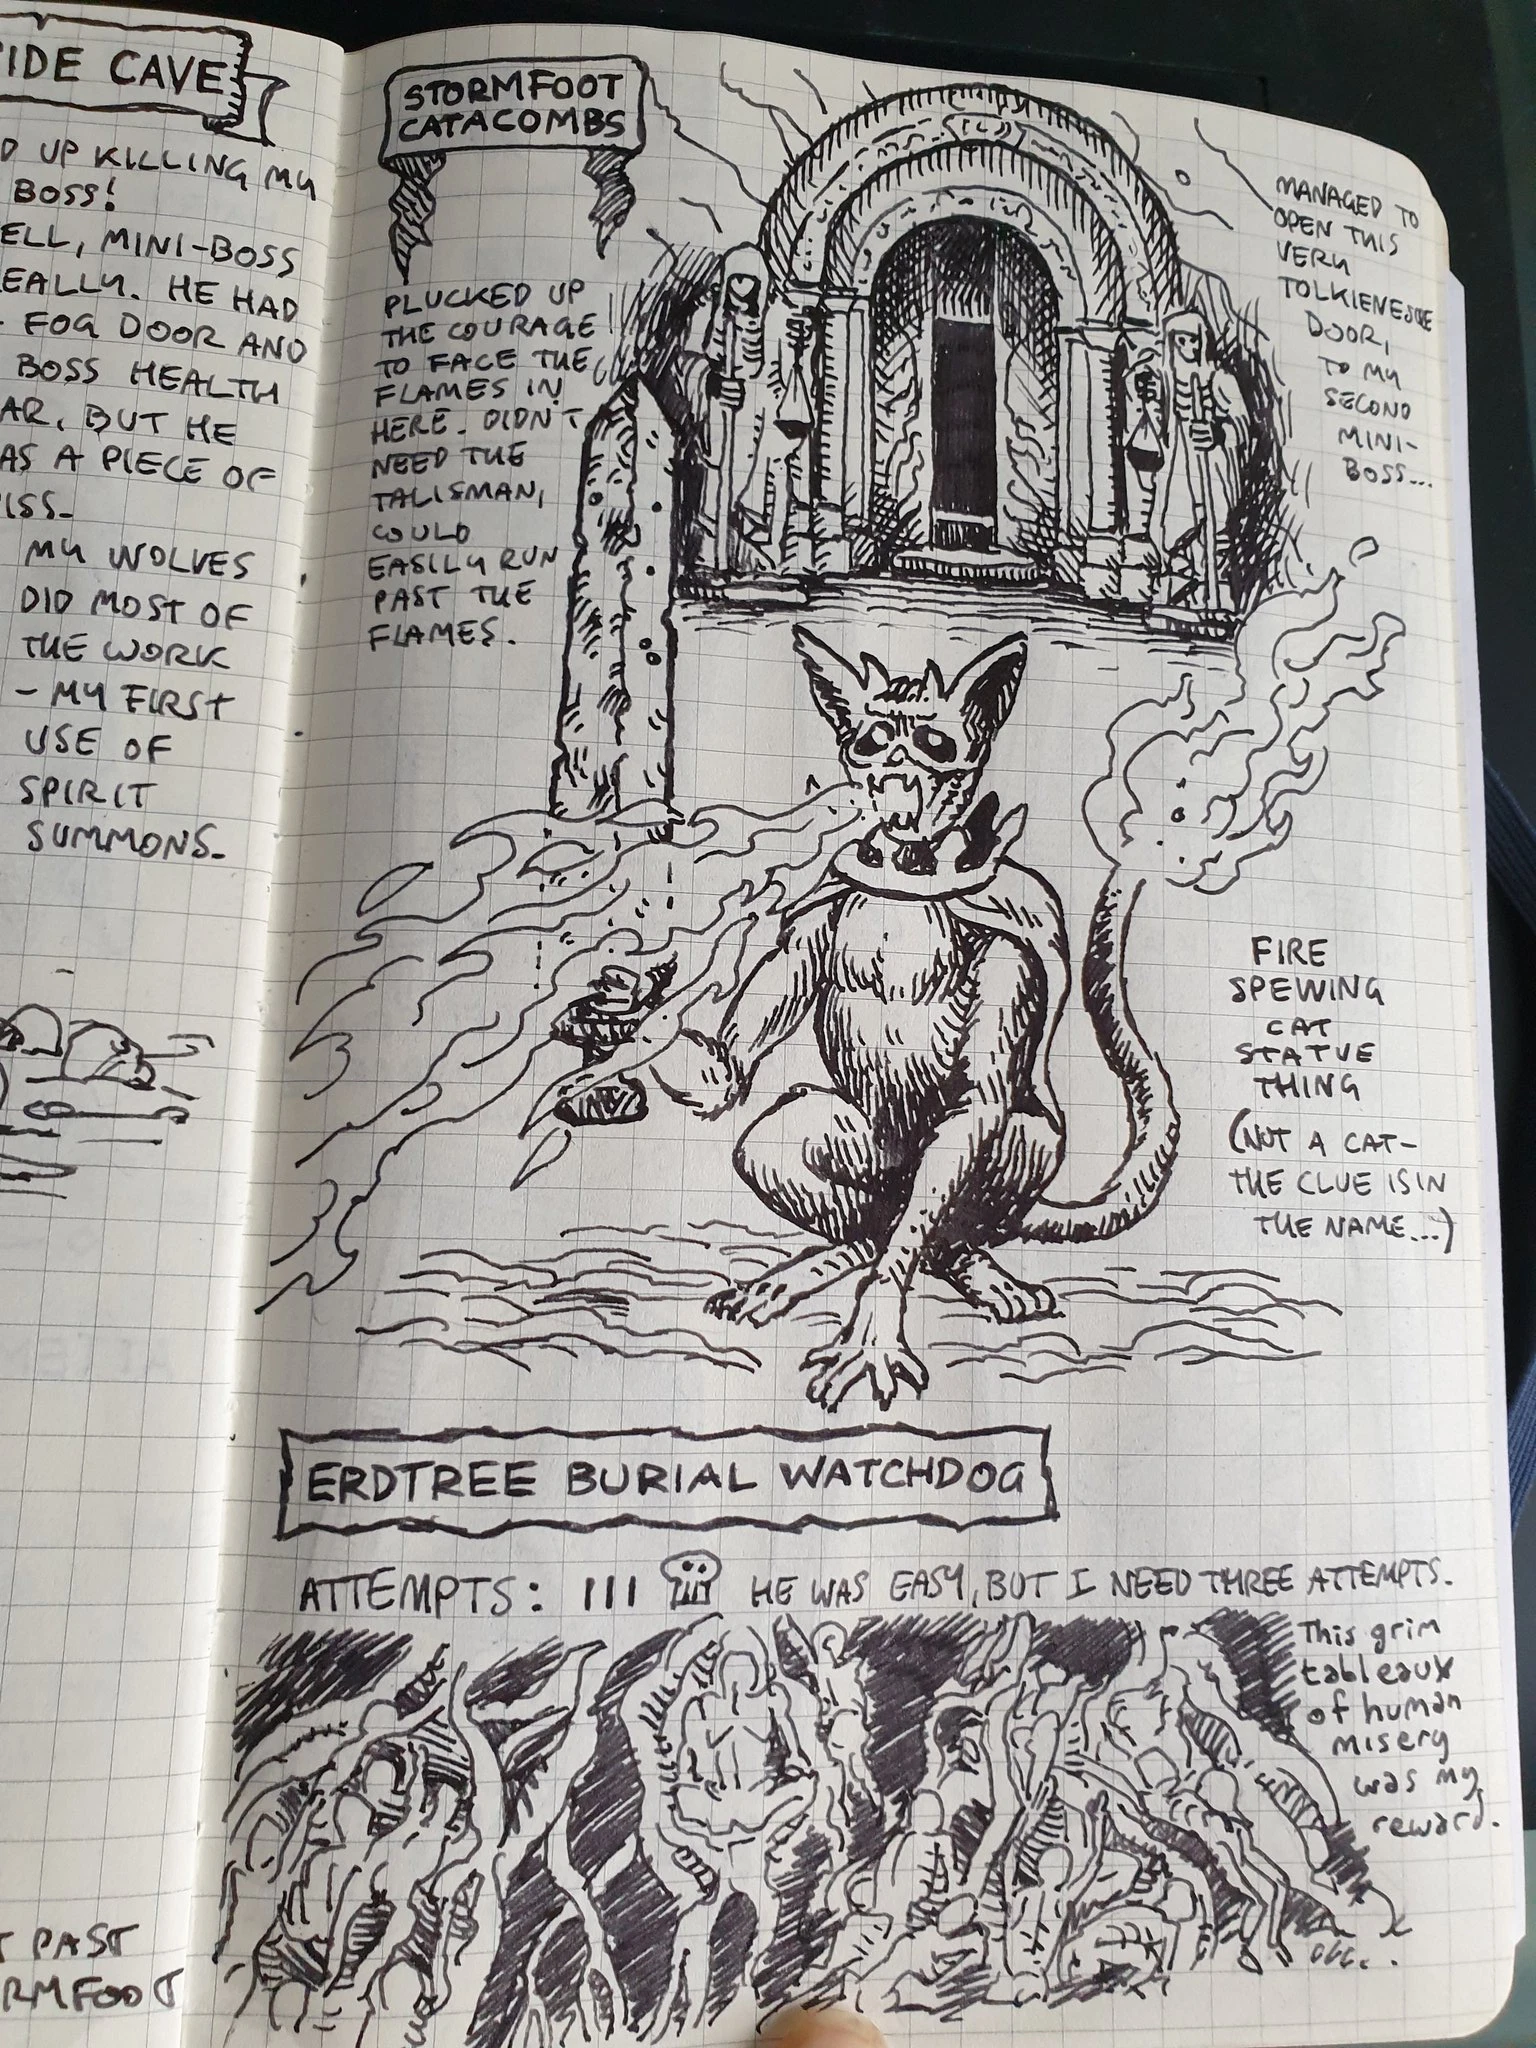 IDE CAVE
D UP KILLING MY
BOSS!
ELL, MINI-BOSS
EALLY. HE HAD
FOG DOOR AND
BOSS HEALTH
AR, BUT HE
AS A PIECE OF
ISS.
MY WOLVES
DID MOST OF
THE WORK
- MY FIRST
USE OF
SPIRIT
SUMMONS.
T PAST
RMFOOT
STORMFOOT
CATACOMBS
PLUCKED UP
THE COURAGE
TO FACE THE
FLAMES IN
HERE. DIDN'T
NEED THE
TALISMAN,
COULD
EASILY RUN
PAST THE
FLAMES.
MANAGED TO
OPEN THIS
VERY
TOLKIENESQUE
DOOR,
TO MY
SECOND
MINI-
BOSS...
FIRE
SPEWING
CAT
STATUE
THING
(NOT A CAT-
THE CLUE IS IN
THE NAME...)
ERDTREE BURIAL WATCHDOG
ATTEMPTS: III HE WAS EASY, BUT I NEED THREE ATTEMPTS.
This grim
tableaux
of human
misery
was my
reward.